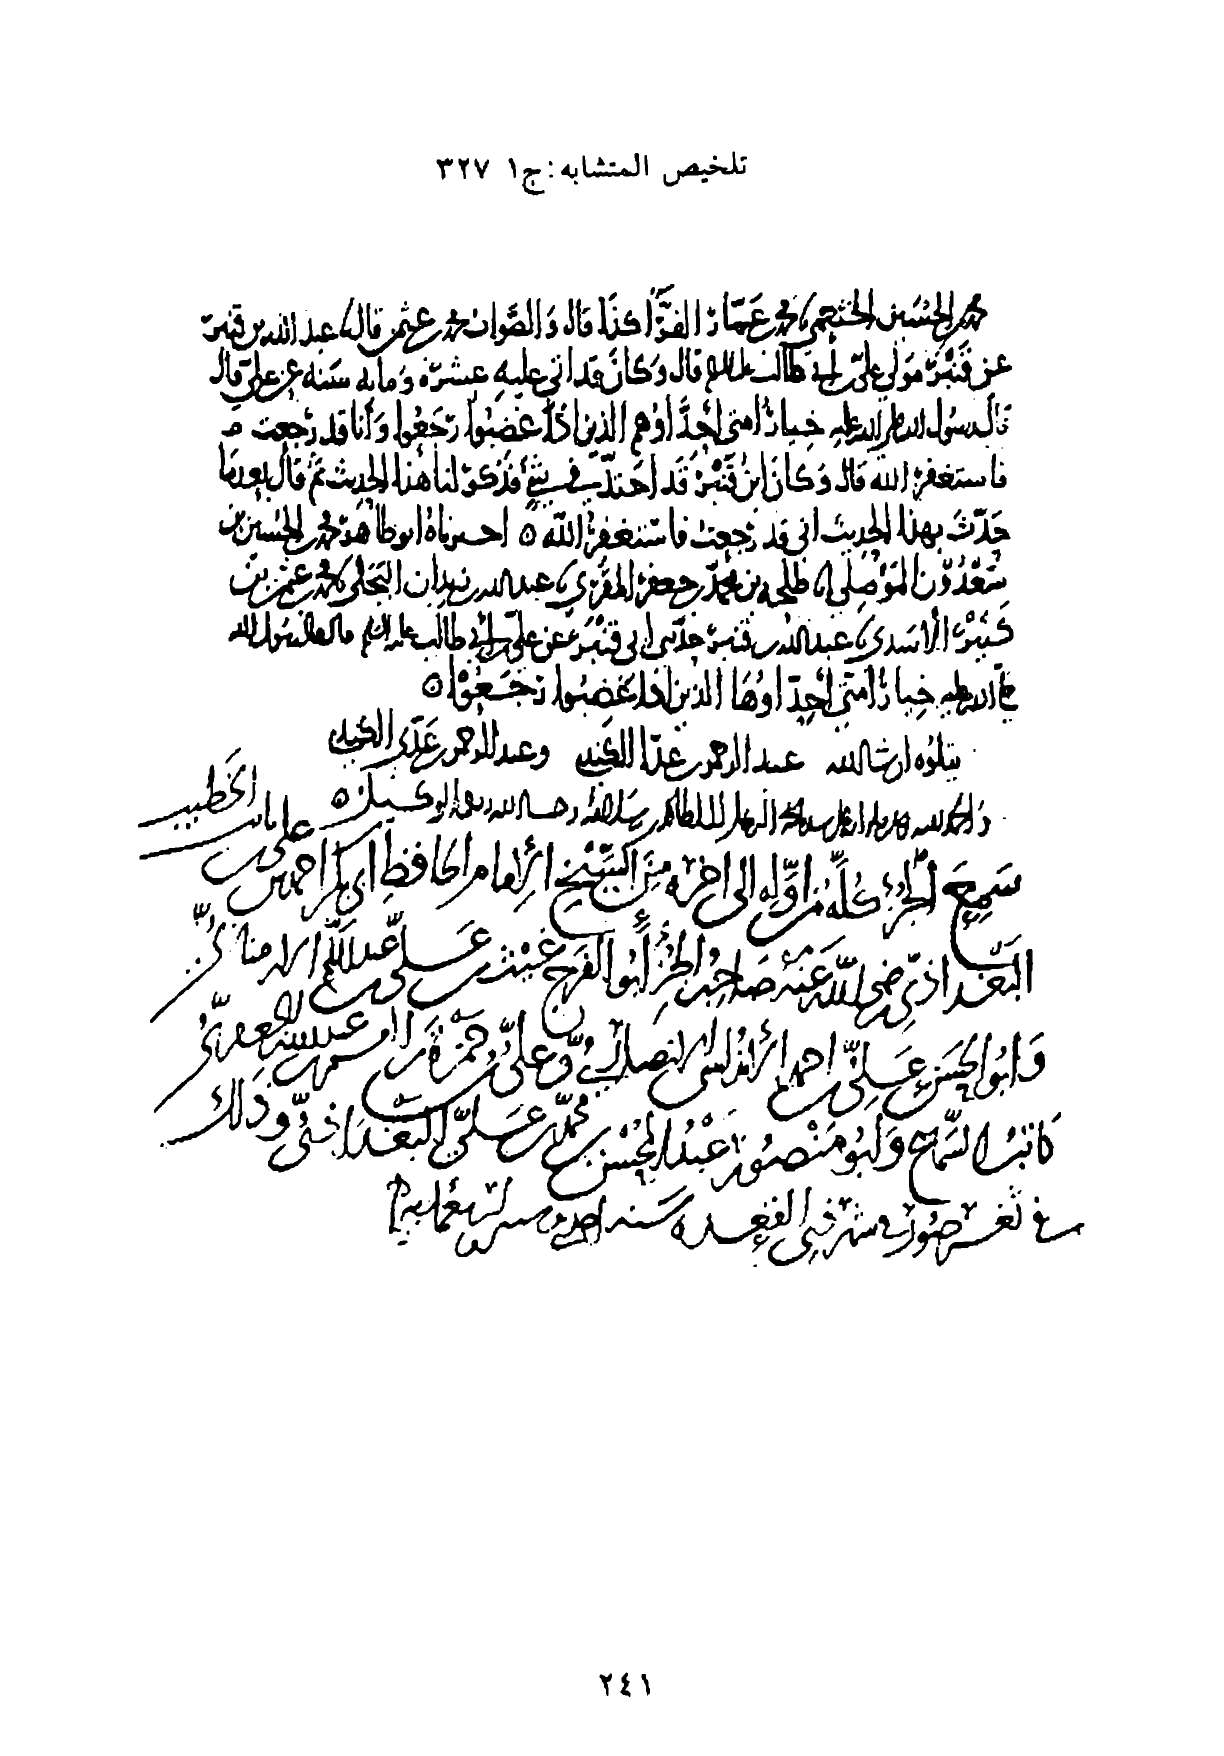 تلخيص المتشابه: ج١ ٣٢٧
محمد بن الحسين الخثعمي نا محمد بن عمار الفرا كذا قال والصواب محمد بن عثمن قال نا عبد الله بن قنبر
عن قنبر مولى علي بن أبي طالب عليه السلم قال وكان قد اتى عليه عشرة ومايه سنه عن علي قال
قال رسول الله صلى الله عليه خيار امتي أحداوهم الذين اذا غضبوا رجعوا وأنا قد رجعت
فاستغفر الله قال وكان ابن قنبر قد احتد في شيء فذكر لنا هذا الحديث ثم قال بعدما
حدث بهذا الحديث اني قد رجعت فاستغفر الله ٥ اخبرناه ابو طاهر محمد بن الحسين بن
سعدون الموصلي نا طلحه بن محمد بن جعفر المقرئ نا عبد الله بن زيدان البجلي نا محمد بن عثمن بن
كثير الأسدي نا عبد الله بن قنبر حدثني ابي قنبر عن علي بن أبي طالب عليه السلم قال قال رسول الله
صلى الله عليه خيار امتي أحداوها الذين اذا غضبوا رجعوا ٥
يتلوه ان شا الله عبد الرحمن بن غدا الكندي وعبد الرحمن بن عدي الكندي
والحمد لله وصلى الله على سيدنا محمد النبي وآله الطاهرين وسلامه حسبنا الله ونعم الوكيل ٥
سمع الجزء كله من اوله الى اخره من الشيخ الإمام الحافظ ابي بكر احمد بن علي بن ثابت الخطيب
البغداذي رضي الله عنه صاحب الجزء أبو الفرج غيث بن علي بن عبد السلم الارمنازي
وابو الحسن علي بن احمد الأندلسي الانصاري وعلي بن حمزة بن
كاتب السماع وابو منصور عبد المحسن بن محمد بن علي البغداذي وذلك
في ثغر صور في شهر ذي القعده سنه احدى وستين واربعمايه
٢٤١